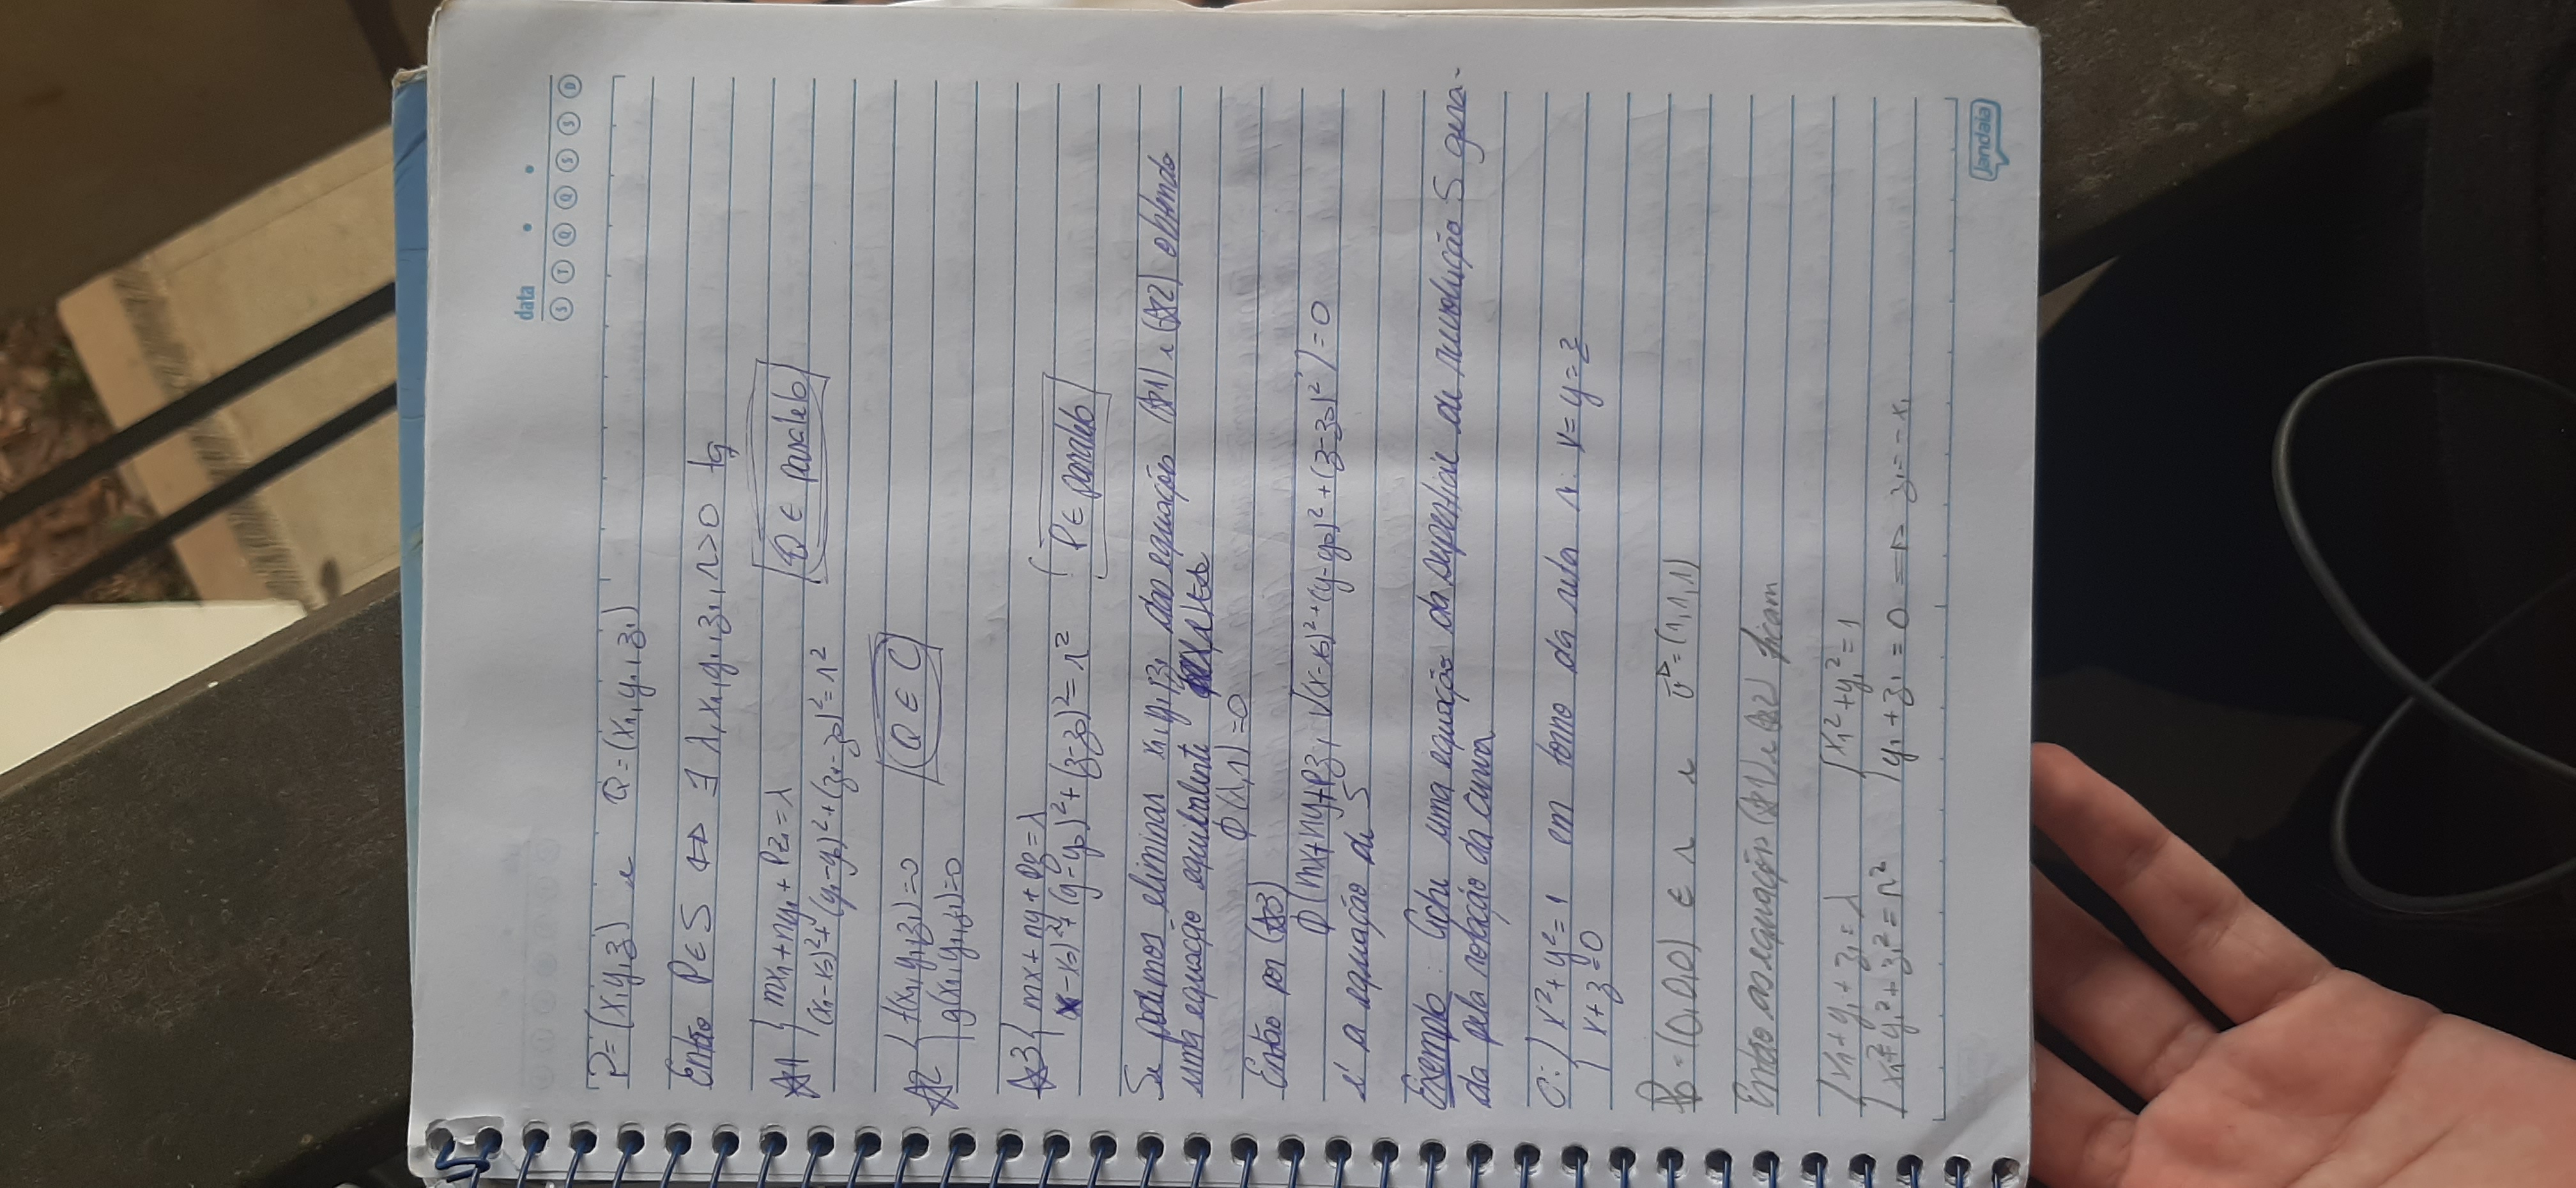 data
S T Q Q S S D
P=(x,y,z) e Q=(x₁,y₁,z₁)
Então P∈S ⇔ ∃ λ,x₁,y₁,z₁,r>0 tq
☆1 { mx₁+ny₁+pz₁=λ
(x₁-x₀)²+(y₁-y₀)²+(z₁-z₀)²=r² Q ∈ paralelo
☆2 { f(x₁,y₁,z₁)=0 Q ∈ C
g(x₁,y₁,z₁)=0
☆3 { mx+ny+pz=λ
(x-x₀)²+(y-y₀)²+(z-z₀)²=r² P∈ paralelo
Se podemos eliminar x₁,y₁,z₁ das equações (☆1) e (☆2) obtendo
uma equação equivalente
ϕ(λ,r)=0
Então por (☆3)
ϕ(mx+ny+pz, √(x-x₀)²+(y-y₀)²+(z-z₀)²)=0
é a equação de S
Exemplo: Ache uma equação da superfície de revolução S gera-
da pela rotação da curva
C: { x²+y²=1 em torno da reta r: x=y=z
x+z=0
P₀=(0,0,0) ∈ r e v→=(1,1,1)
Então as equações (☆1) e (☆2) ficam
{ x₁+y₁+z₁=λ { x₁²+y₁²=1
x₁²+y₁²+z₁²=r² y₁+z₁=0 ⇒ z₁=-x₁
Jandaia